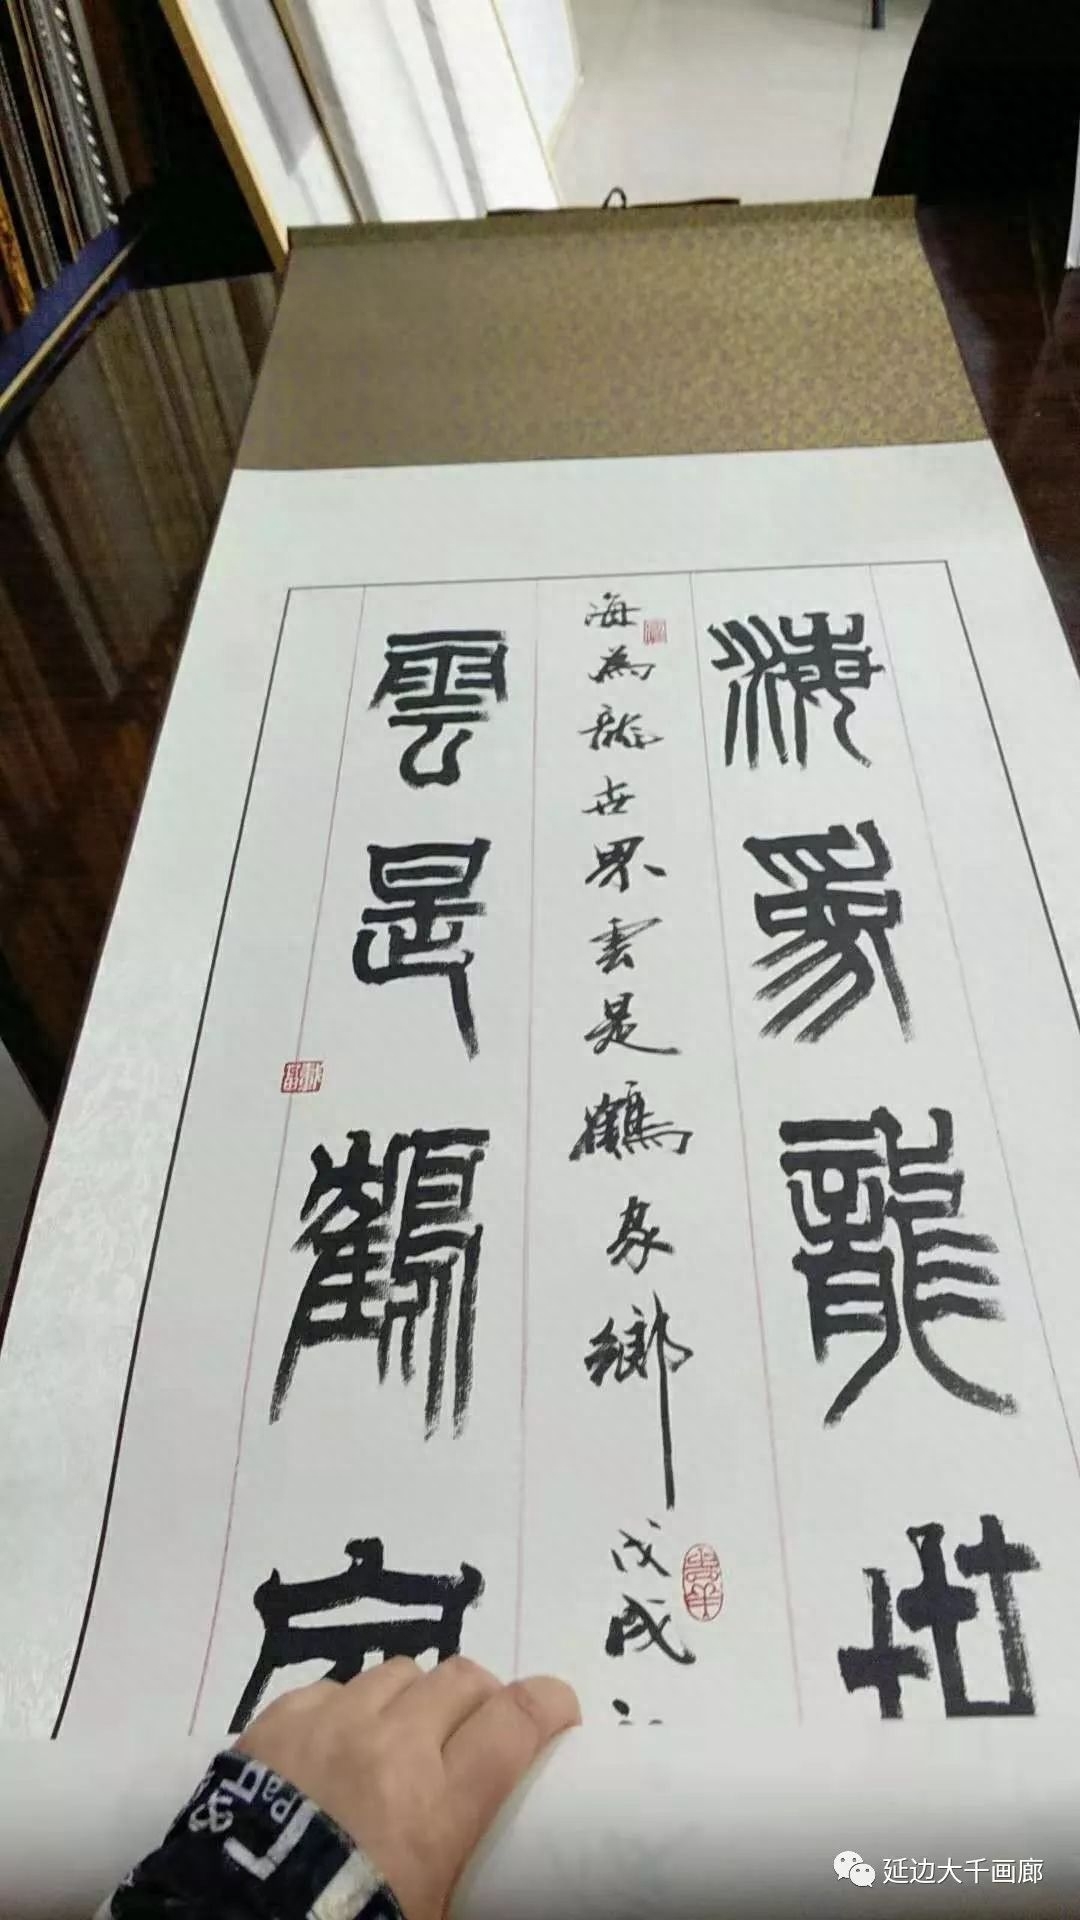 海為龍世
海為龍世界雲是鶴家鄉戊戌
雲是鶴家
延边大千画廊